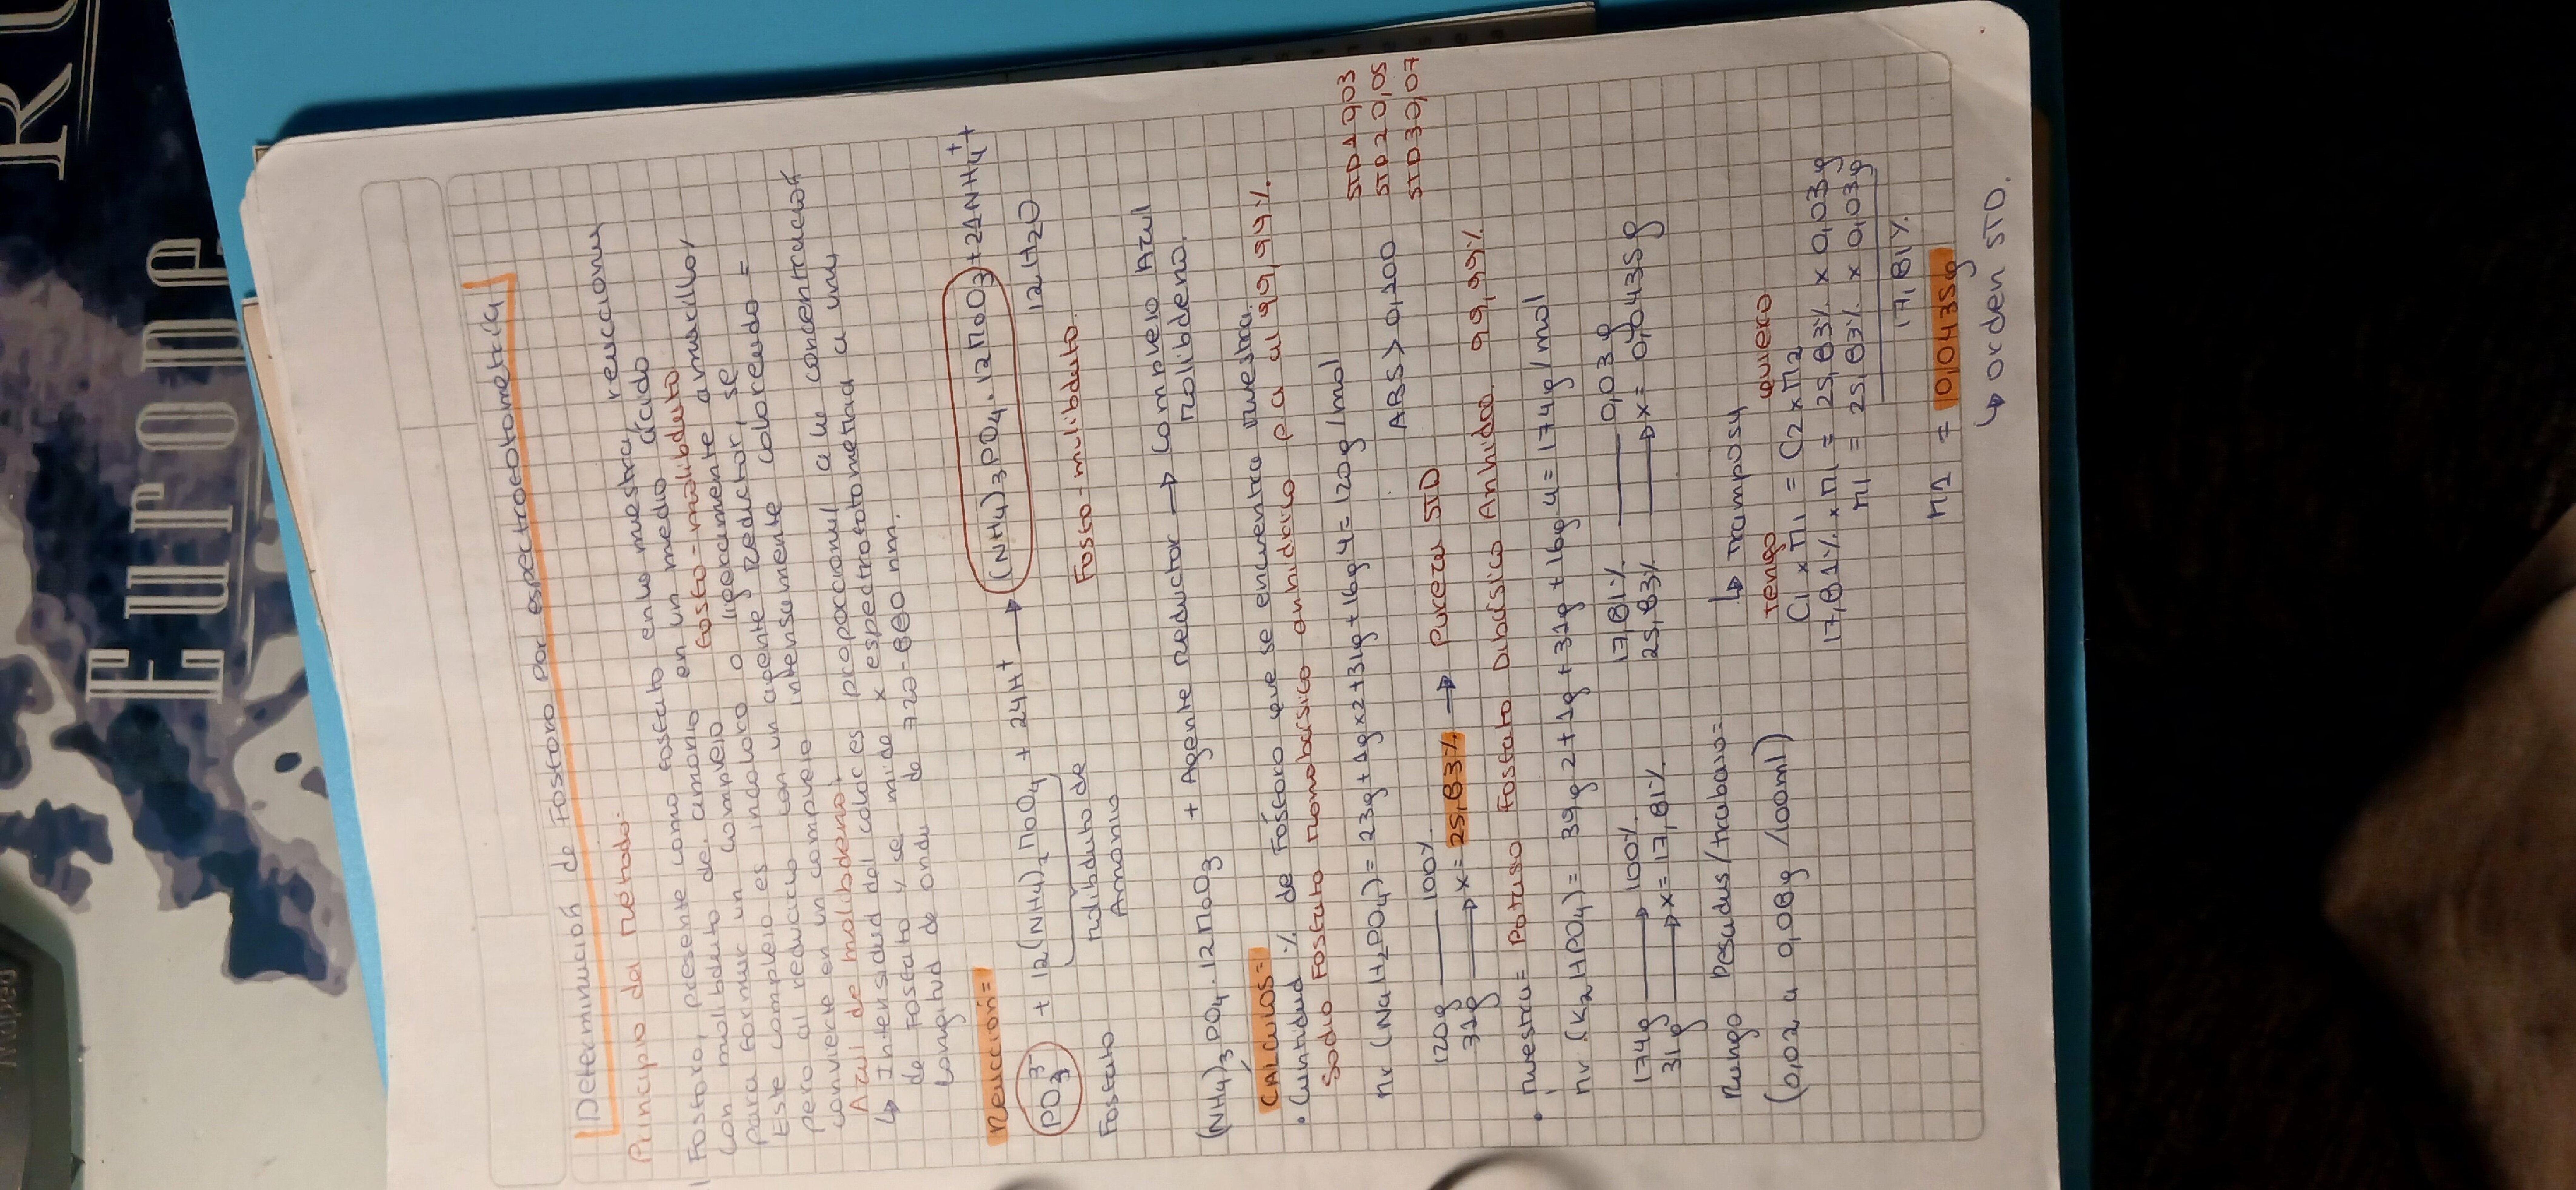 Determinación de Fósforo por espectrofotometría
Principio del método:
Fósforo, presente como fosfato en la muestra, reacciona
con molibdato de amonio en un medio ácido
para formar un complejo fosfo-molibdato.
Este complejo es incoloro o ligeramente amarillo,
pero al reducirlo con un agente reductor, se
convierte en un complejo intensamente coloreado =
Azul de molibdeno;
↳ Intensidad del color es proporcional a la concentración
de Fosfato y se mide x espectrofotometría a una
longitud de onda de 720-880 nm.
Reacción=
PO₃³⁻ + 12(NH₄)₂MoO₄ + 24H⁺ → (NH₄)₃PO₄.12MoO₃ + 21NH₄⁺ +
12H₂O
Fosfato
molibdato de
Amonio
Fosfo-molibdato.
(NH₄)₃PO₄.12MoO₃ + Agente reductor → Complejo Azul
Molibdeno.
CÁLCULOS=
• Cantidad % de Fósforo que se encuentra muestra.
Sodio Fosfato Monobásico anhidrico pa al 99,99%.
mr (NaH₂PO₄)= 23g+1g x2+31g+16g 4= 120g/mol
STD1 0,03
STD2 0,05
STD3 0,07
ABS > 0,200
120g —— 100%
31g → x= 25,83% → Pureza STD
• Muestra= Potasio Fosfato Dibásico Anhidro 99,99%
mr (K₂HPO₄)= 39g 2+1g+31g+16g 4= 174g/mol
174g → 100%
31g → x= 17,81%
17,81% —— 0,03g
25,83% → x= 0,0435g
Rango Pesadas/trabajo=
(0,02 a 0,08g /100ml)
↳ Transposa
tengo quiero
C₁ x M₁ = C₂ x M₂
17,81% x M₁ = 25,83% x 0,03g
M₁ = 25,83% x 0,03g
17,81%
M1 = 0,0435g
↳ orden STD.
EUROPE